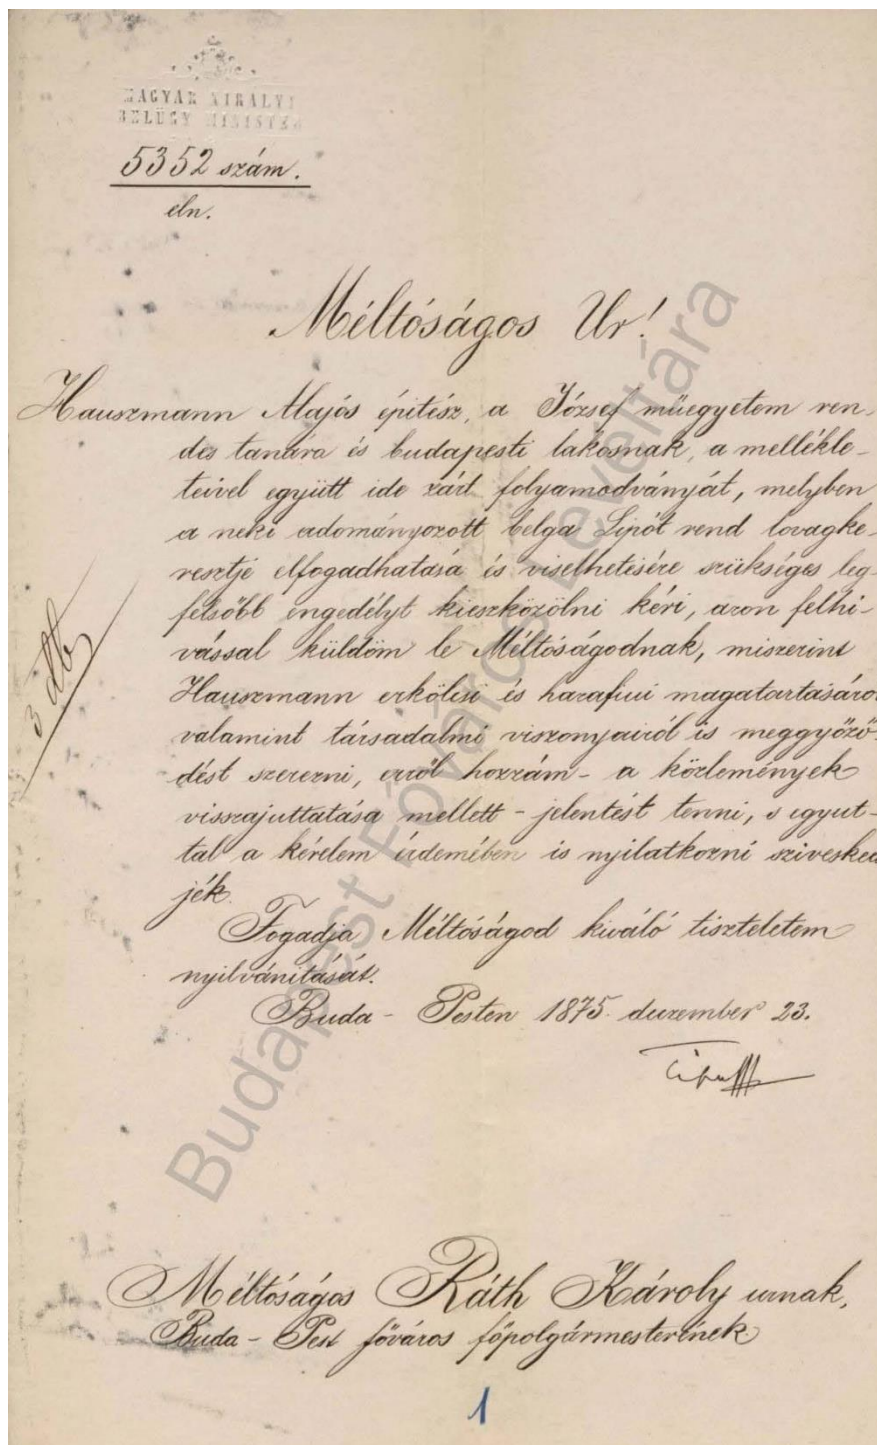 MAGYAR KIRÁLYI
BELÜGY MINISTER
5352 szám.
eln.
Méltóságos Ur!
Hauszmann Alajós épitész, a József műegyetem ren-
des tanára és budapesti lakosnak, a mellékle-
teivel együtt ide zárt folyamodványát, melyben
a neki adományozott belga Lipót rend lovagke-
resztje elfogadhatása és viselhetésére szükséges leg-
felsőbb engedélyt kieszközölni kéri, azon felhi-
vással küldöm le Méltóságodnak, miszerint
Hauszmann erkölcsi és hazafiui magatartásáról
valamint társadalmi viszonyairól is meggyőző-
dést szerezni, erről hozzám - a közlemények
visszajuttatása mellett - jelentést tenni, s egyut-
tal a kérelem érdemében is nyilatkozni sziveskedjék
jék.
Fogadja Méltóságod kiváló tiszteletem
nyilvánitását.
Buda - Pesten 1875. dezember 23.
3 db
Méltóságos Ráth Károly urnak,
Buda - Pest főváros főpolgármesterének
1
Budapest Főváros Levéltára